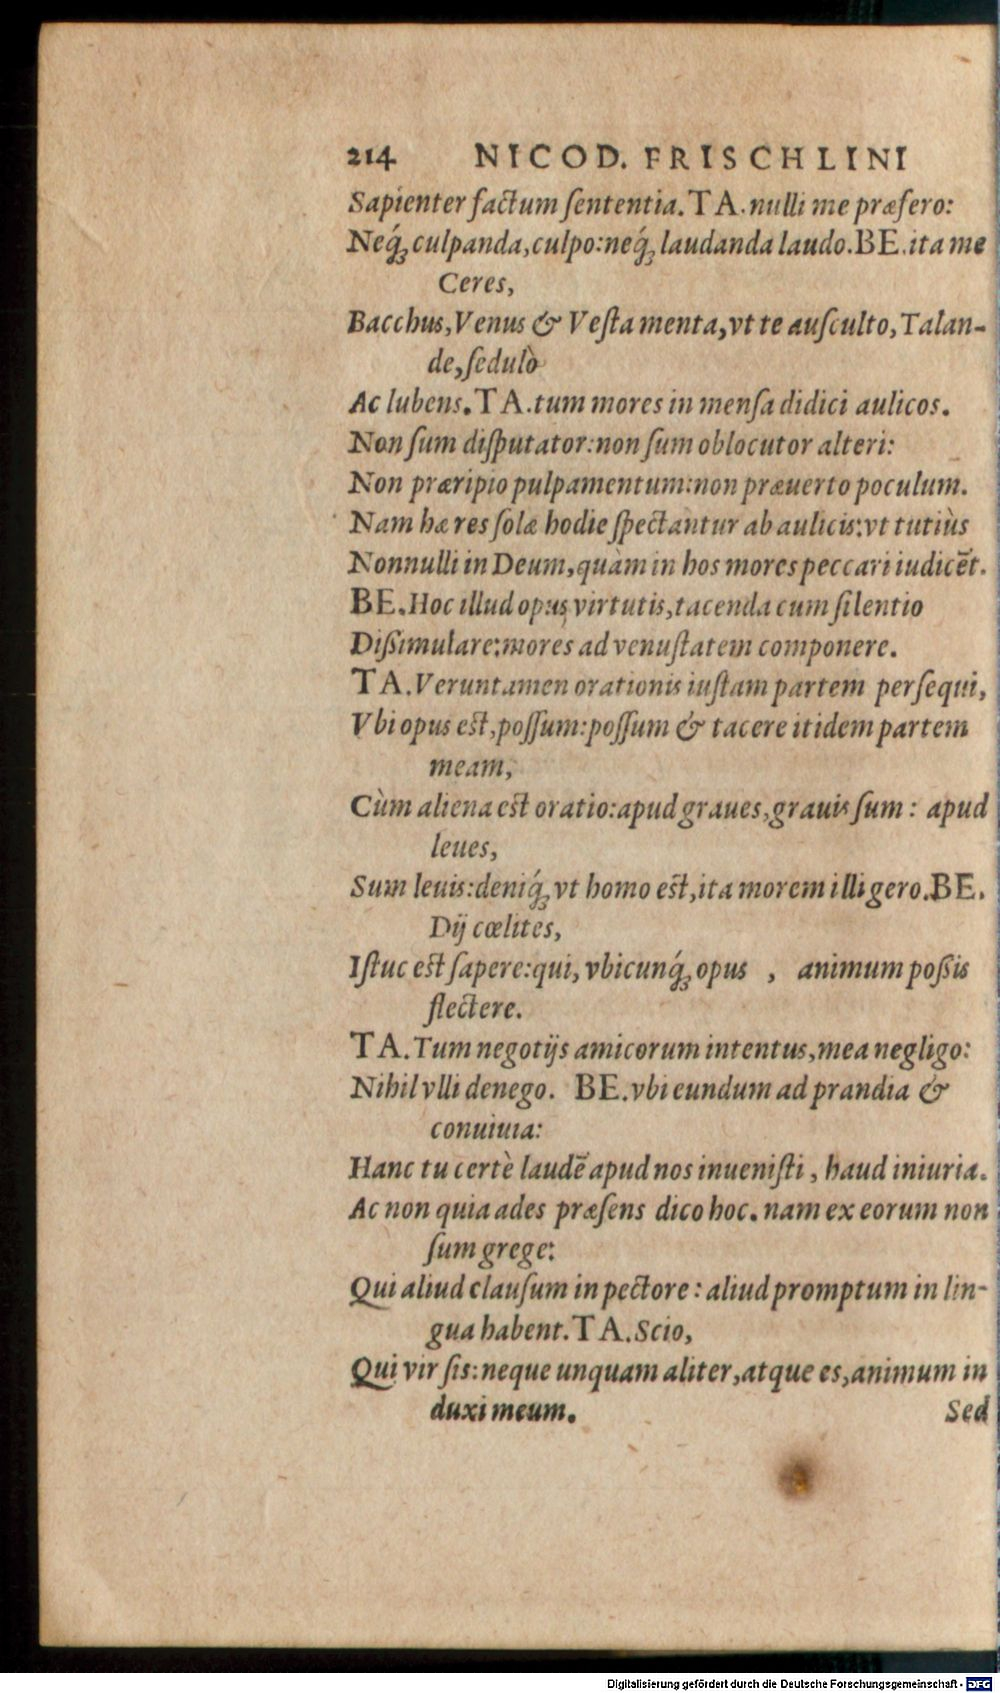 214 NICOD. FRISCHLINI
Sapienter factum ſententia. TA. nulli me præfero:
Neq́ꝫ culpanda, culpo: neq́ꝫ laudanda laudo. BE. ita me
Ceres,
Bacchus, Venus & Veſta menta, vt te auſculto, Talan-
de, ſedulò
Ac lubens. TA. tum mores in menſa didici aulicos.
Non ſum diſputator: non ſum oblocutor alteri:
Non præripio pulpamentum: non præuerto poculum.
Nam hæ res ſolæ hodie ſpectantur ab aulicis: vt tutiùs
Nonnulli in Deum, quàm in hos mores peccari iudicēt.
BE. Hoc illud opus virtutis, tacenda cum ſilentio
Diſsimulare: mores ad venuſtatem componere.
TA. Veruntamen orationis iuſtam partem perſequi,
Vbi opus eſt, poſſum: poſſum & tacere itidem partem
meam,
Cùm aliena eſt oratio: apud graues, grauis ſum: apud
leues,
Sum leuis: deniq́ꝫ vt homo eſt, ita morem illi gero. BE.
Dij cœlites,
Iſtuc eſt ſapere: qui, vbicunq́ꝫ opus , animum poſsis
flectere.
TA. Tum negotijs amicorum intentus, mea negligo:
Nihil vlli denego. BE. vbi eundum ad prandia &
conuiuia:
Hanc tu certè laudē apud nos inueniſti, haud iniuria.
Ac non quia ades præſens dico hoc. nam ex eorum non
ſum grege:
Qui aliud clauſum in pectore: aliud promptum in lin-
gua habent. TA. Scio,
Qui vir ſis: neque unquam aliter, atque es, animum in
duxi meum.
Sed
Digitalisierung gefördert durch die Deutsche Forschungsgemeinschaft - DFG